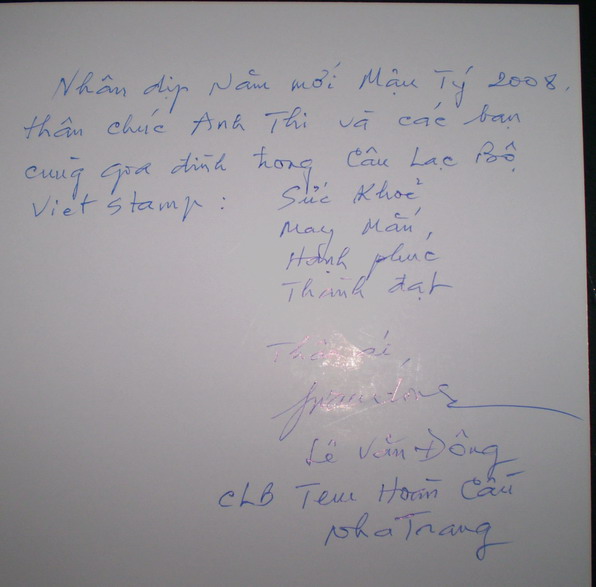 Nhân dịp Năm mới Mậu Tý 2008,
thân chúc Anh Thi và các bạn
cùng gia đình trong Câu Lạc Bộ
Viet Stamp :
Sức Khoẻ
May Mắn,
Hạnh phúc
Thành đạt
Thân ái,
Lê Văn Đông
CLB Tem Hoàn Cầu
Nha Trang